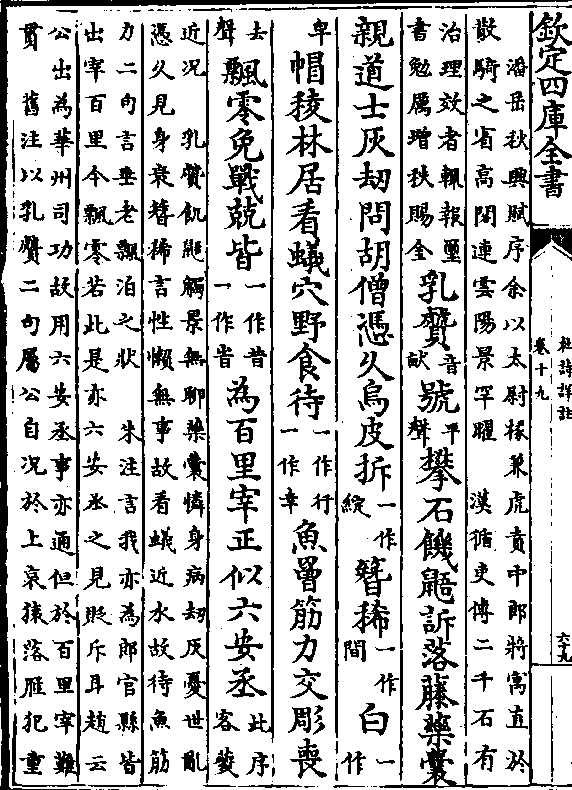 欽定四庫全書
杜詩詳註
卷十九
六十九
潘岳秋興賦序余以太尉掾兼虎賁中郎將寓直於
散騎之省高閣連雲陽景罕曜　漢循吏傳二千石有
治理效者輒報璽
書勉厲增秩賜金
乳贙音畎號平聲攀石饑鼯訴落藤藥囊
親道士灰劫問胡僧憑久烏皮折一作綻簪稀一作間白一作
卑帽稜林居看蟻穴野食待一作行一作幸魚罾筋力交彫喪
去聲飄零免戰兢皆一作昔一作旹為百里宰正似六安丞此序客夔
近况　乳贙飢鼯觸景無聊藥囊憐身病劫灰憂世亂
憑久見身衰簪稀言性懶無事故看蟻近水故待魚筋
力二句言垂老飄泊之狀　朱注言我亦為郎官縣皆
出宰百里今飄零若此是亦六安丞之見貶斥耳趙云
公出為華州司功故用六安丞事亦通但於百里宰難
貫　舊注以乳贙二句屬公自况於上哀猿落雁犯重